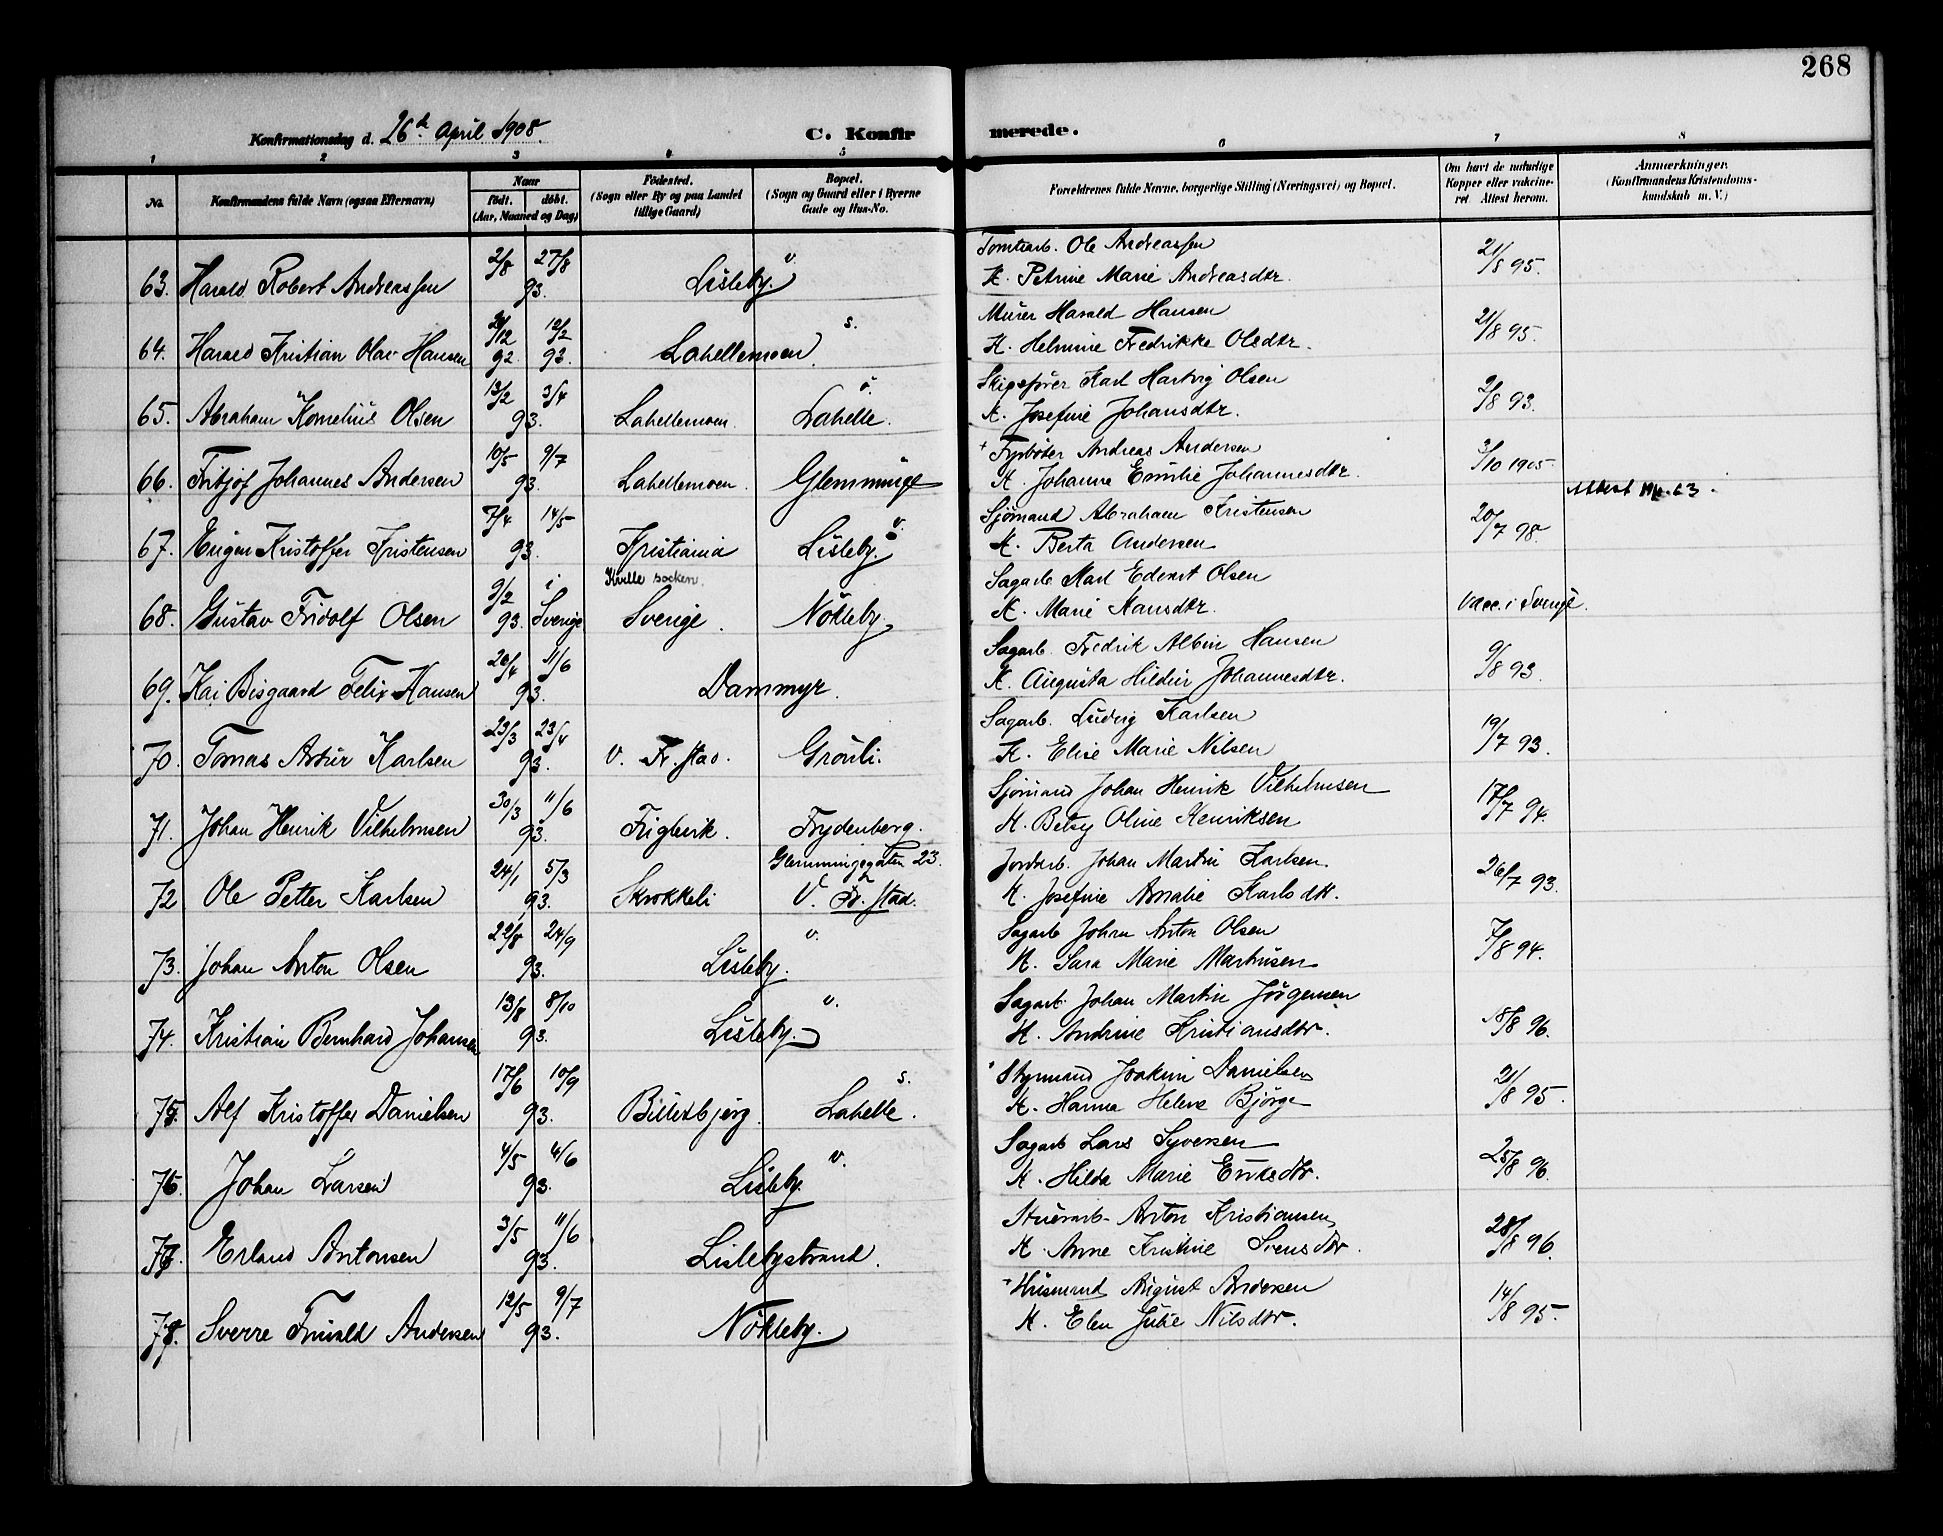 268
Konfirmationsdag d. 26de April 1908.
C. Konfirmerede.
1 2 3 4 5 6 7 8
No.
Konfirmandens fulde Navn (ogsaa Efternavn)
Naar
født. døbt.
(Aar, Maaned og Dag)
Födested.
(Sogn eller By og paa Landet
tillige Gaard)
Bopæl.
(Sogn og Gaard eller i Byerne
Gade og Hus-No.
Forældrenes fulde Navne, borgerlige Stilling (Næringsvei) og Bopæl.
Om havt de naturlige
Kopper eller vakcine-
ret. Attest herom.
Anmærkninger.
(Konfirmandens Kristendoms-
kundskab m. V.)
63. Harald Robert Andreassen 2/8 27/8 93. Lisleby. v.
Tomtearb. Ole Andreassen
K. Petrine Marie Andreasdtr. 21/8 95.
64. Harald Kristian Olav Hansen 92. 12/2 93. Lahellemoen. s.
Murer Harald Hansen
K. Helmine Fredrikke Olsdtr. 21/8 95.
65. Abraham Kornelius Olsen 13/2 3/4 93. Lahellemoen. Lahelle.
Skipsfører Karl Hartvig Olsen
K. Josefine Johansdtr. 2/8 93.
66. Fritjof Johannes Andersen 10/5 9/7 93. Lahellemoen. Glemminge
+ Fyrbøter Andreas Andersen
K. Johanne Emilie Johannesdtr. 3/10 1905.
Attest No. 63.
67. Eugen Kristoffer Kristensen 7/4 14/5 93. Kristiania Lisleby. v.
Sjømand Abraham Kristensen
K. Berta Andersen 20/7 98.
68. Gustav Fridolf Olsen 9/2 93. i Sverige Kville socken. Sverige. Nökleby.
Sagarb. Karl Edvart Olsen
K. Marie Hansdtr. Vacc. i Sverige.
69. Kai Bisgaard Felix Hansen 26/4 11/6 93. Dammyr.
Sagarb. Fredrik Albin Hansen
K. Augusta Hildur Johannesdtr. 9/8 93.
70. Tomas Artur Karlsen 23/3 23/4 93. V. Fr.stad. Grönli.
Sagarb. Ludvig Karlsen
K. Elise Marie Nilsen 19/7 93.
71. Johan Henrik Vilhelmsen 30/3 11/6 93. Fuglevik. Frydenberg.
Sjømand Johan Henrik Vilhelmsen
K. Betsy Oline Henriksen 17/7 94.
72. Ole Petter Karlsen 24/1 5/3 93. Skrokkeli Glemmingegaten 23. V. Fr.stad.
Jordarb. Johan Martin Karlsen.
K. Josefine Amalie Karlsdtr. 26/7 93.
73. Johan Anton Olsen 22/8 24/9 93. Lisleby. v.
Sagarb. Johan Anton Olsen
K. Sara Marie Martinsen 7/8 94.
74. Kristian Bernhard Johansen 13/8 8/10 93. Lisleby. v.
Sagarb. Johan Martin Jörgensen
K. Andrine Kristiansdtr. 18/8 96.
75. Alf Kristoffer Danielsen 17/6 10/9 93. Lahelle. s.
Styrmand Joakim Danielsen
K. Hanna Helene Bjørge 21/8 95.
76. Johan Larsen 4/5 4/6 93. Lisleby. v.
Sagarb. Lars Syversen
K. Hilda Marie Eriksdtr. 25/8 96.
77. Erland Antonsen 3/5 11/6 93. Lislebystrand.
Stuerarb. Anton Kristiansen
K. Anne Kristine Svensdtr. 28/8 96.
78. Sverre Andersen 12/5 9/7 93. Nökleby.
+ Husmand August Andersen
K. Elen Julie Nilsdtr. 14/8 95.